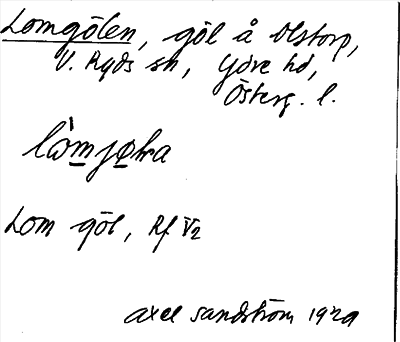 Lomgölen, göl å Olstorp,
V. Ryds sn, Ydre hd,
Österg. l.
lòmjøka
Lom göl, Rf V2
Axel Sandström 1929